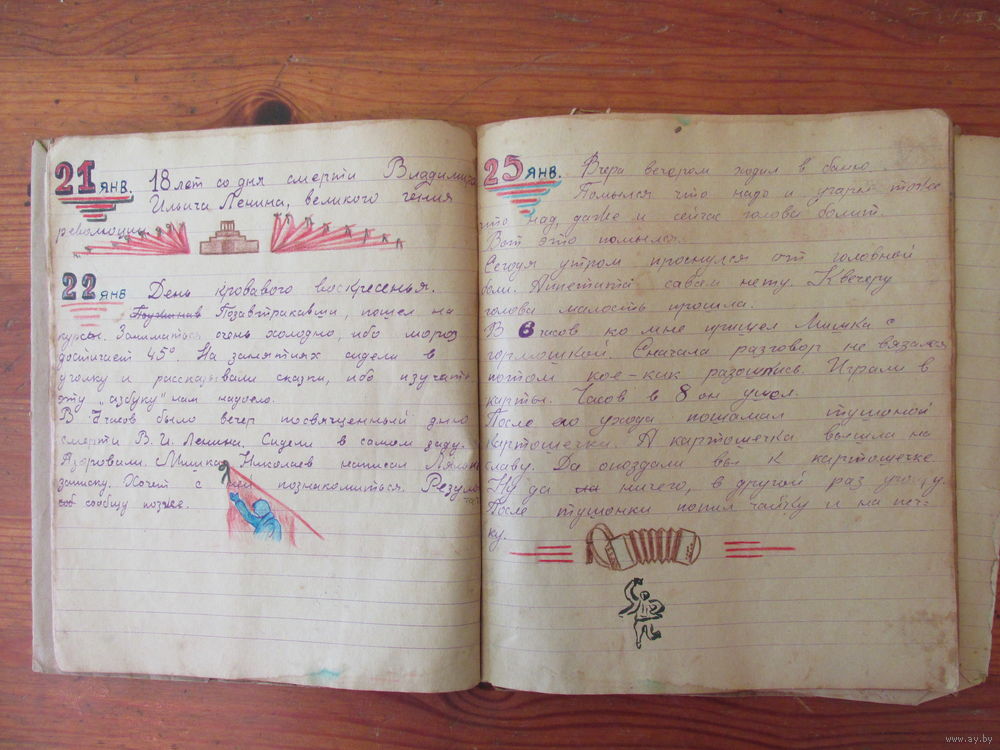 21 янв. 18 лет со дня смерти Владимира
Ильича Ленина, великого гения
революции.
22 янв День кровавого воскресенья.
Позавтракавши, пошел на
курсы. Заниматься очень холодно, ибо мороз
достигает 45°. На занятиях сидели в
уголку и рассказывали сказки, ибо изучать
эту "азбуку" нам надоело.
В 7 часов было вечер посвященный дню
смерти В. И. Ленина. Сидели в самом заду.
Мишка Николаев написал
записку. Хочит с ней познакомиться. Резуль-
тат
сообщу позже.
25 янв. Вчера вечером ходил в баню.
Помылся что надо и угарел тоже
что над, даже и сейчас голова болит.
Вот это помылся.
Сегодя утром проснулся от головной
боли. Аппетита савсем нету. К вечеру
голова малость прошла.
В 6 часов ко мне пришел Мишка с
гормошкой. Сначала разговор не вязался
потом кое-как разошлись. Играли в
карты. Часов в 8 он ушол.
После его ухода пошамал тушоной
картошечки. А картошечка вышла на
славу. Да опоздали вы к картошечке
Ну да ничего, в другой раз угощу.
После тушонки попил чайку и на печ-
ку.
www.ay.by